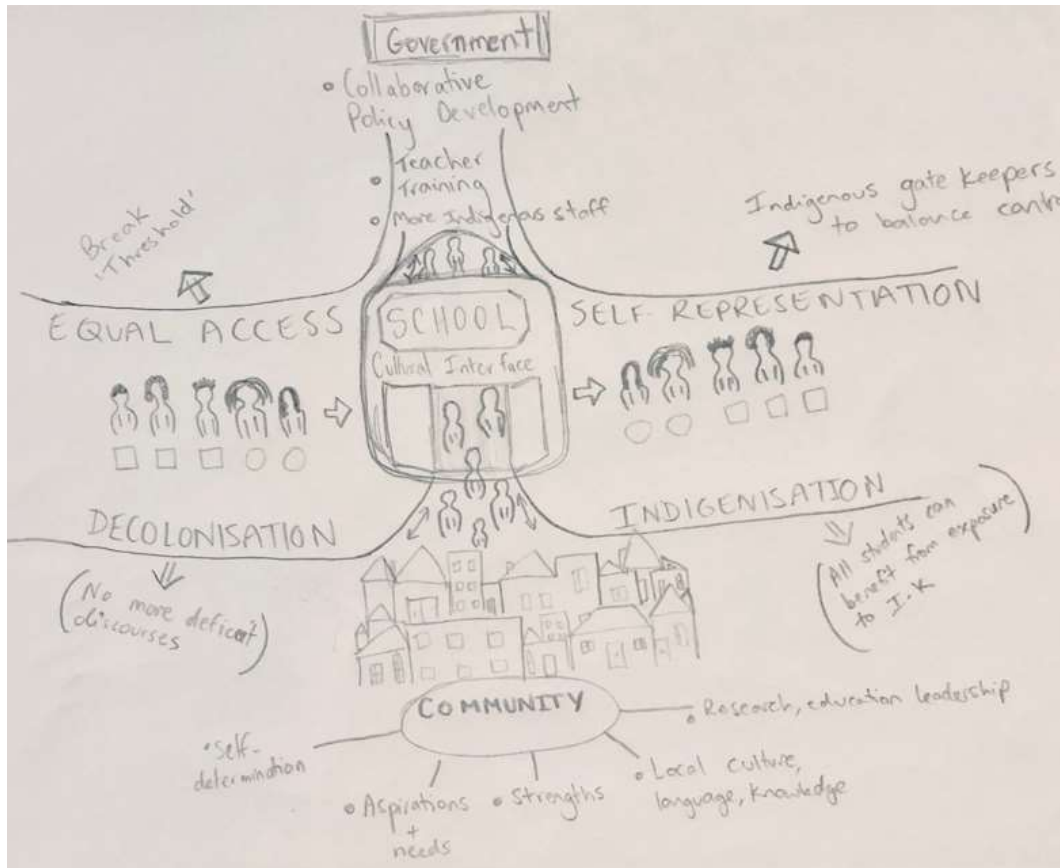 Government
• Collaborative
Policy Development
• Teacher
Training
• More Indigenous staff
Break
'Threshold'
Indigenous gate keepers
to balance
EQUAL ACCESS
SCHOOL
SELF-REPRESENTATION
Cultural Interface
DECOLONISATION
INDIGENISATION
(No more deficit
discourses)
(All students can
benefit from exposure
to I.K)
COMMUNITY
• Self-
determination
• Aspirations
+
needs
• Strengths
• Local culture,
language, knowledge
• Research, education leadership